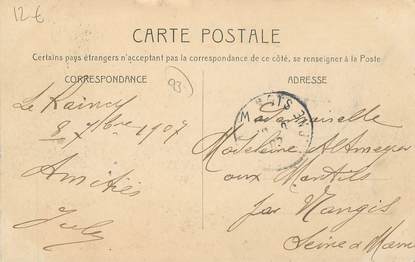 12 €
CARTE POSTALE
Certains pays étrangers n'acceptant pas la correspondance de ce côté, se renseigner à la Poste
CORRESPONDANCE
93
Le Raincy
8 7bre 1907
Amitiés
Jules
ADRESSE
Mademoiselle
Madeleine Altmeyer
aux Montils
par Nangis
Seine & Marne